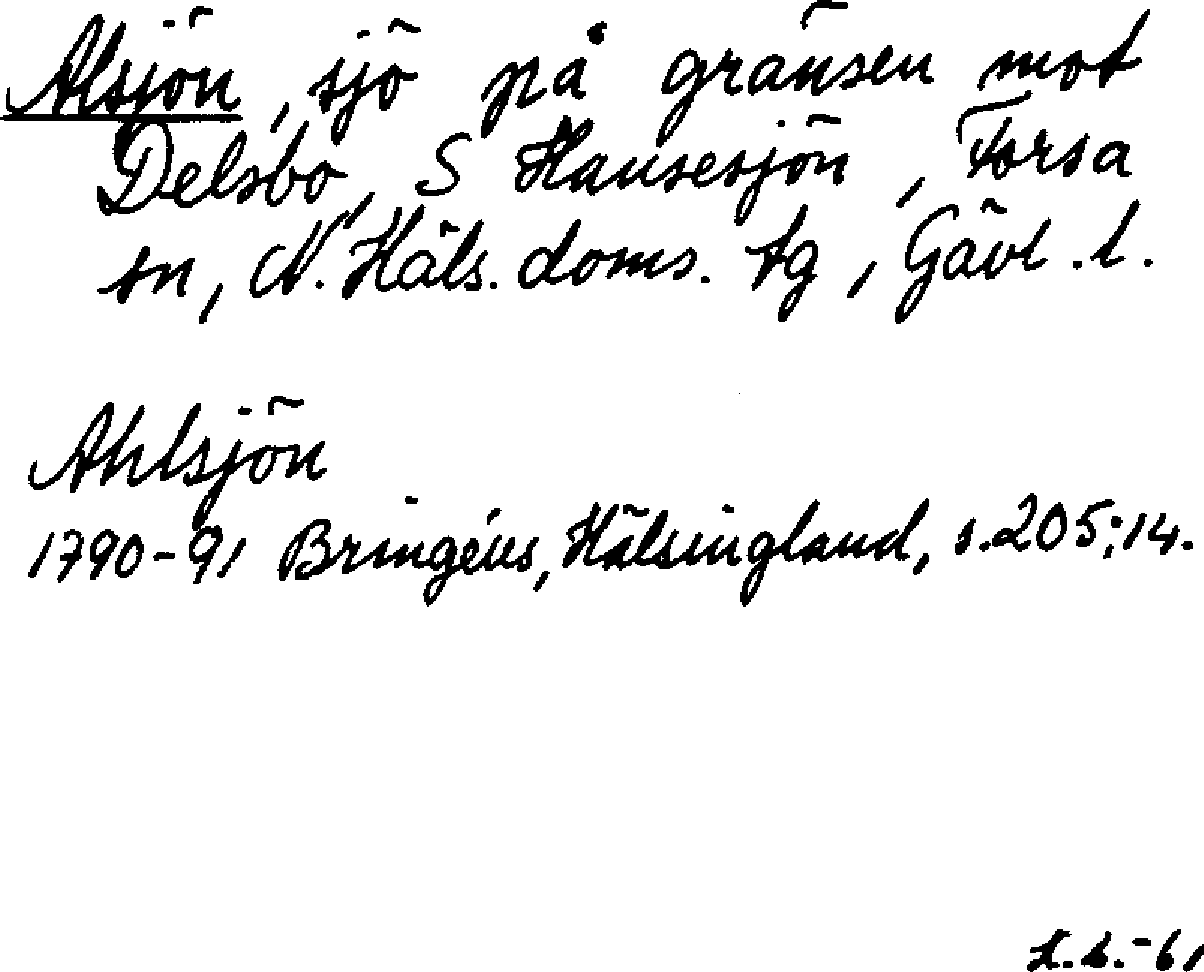 Alsjön, sjö på gränsen mot
Delsbo, S Hansesjön, Forsa
sn, N. Häls. doms. tg, Gävl. l.
Ahlsjön
1790-91 Bringéus, Hälsingland, s. 205; 14.